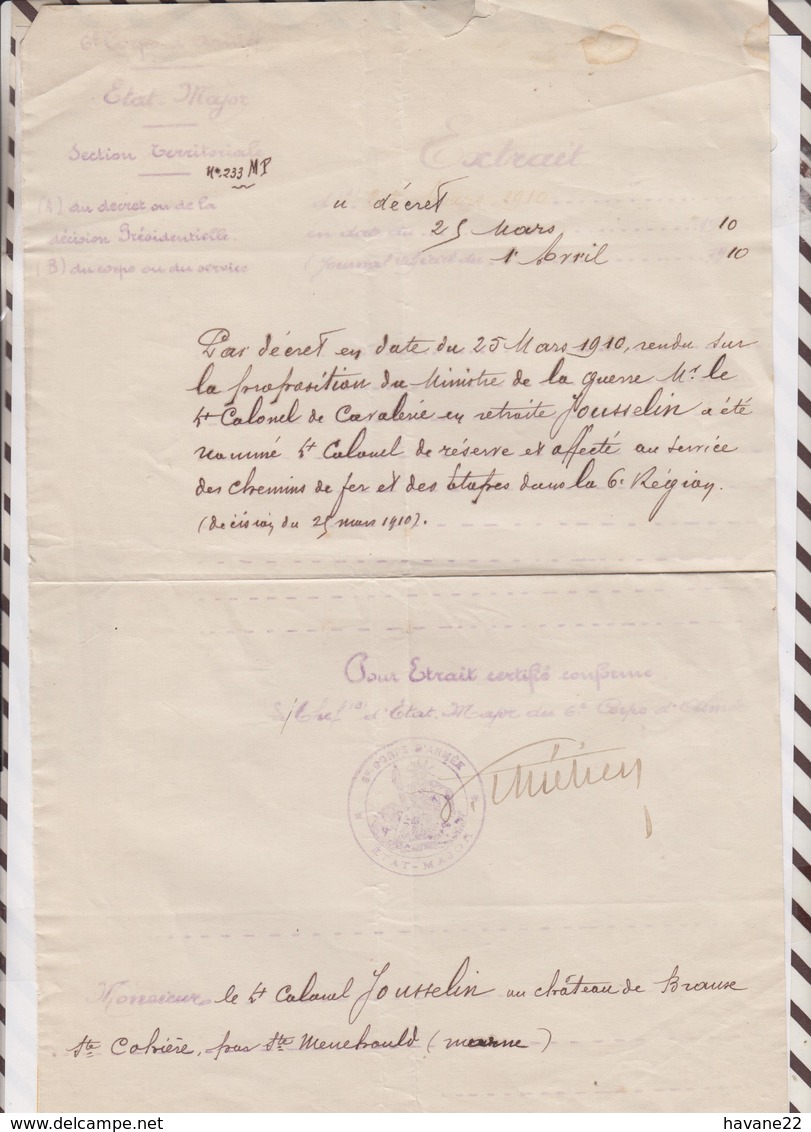 6e Corps d'Armée
Etat-Major
Section Territoriale
No 233 MP
(A) du décret ou de la
décision Présidentielle.
(B) du corps ou du service
Extrait
du décret 1910
en date du 25 Mars 1910
(Journal officiel du 1r Avril 1910
Par décret en date du 25 Mars 1910, rendu sur
la proposition du Ministre de la guerre Mr le
Lt Colonel de Cavalerie en retraite Jousselin a été
nommé Lt Colonel de réserve et affecté au service
des chemins de fer et des étapes dans la 6e Région.
(décision du 25 mars 1910).
Pour Etrait certifié conforme
Le Chef d'Etat-Major du 6e Corps d'Armée
6e CORPS D'ARMÉE
ETAT-MAJOR
Monsieur le Lt Colonel Jousselin au château de
Ste Cohière, par Ste Menehould (marne)
havane22